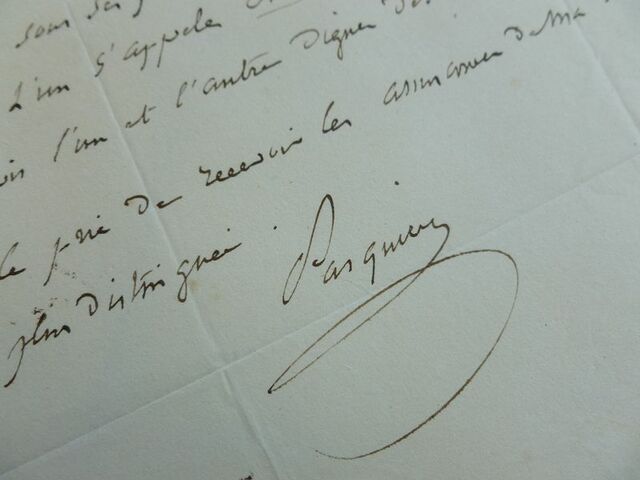 sous
L'un s'appele
l'un et l'autre dignes
le prie de recevoir les assurances de ma
plus distinguée. Pasquier